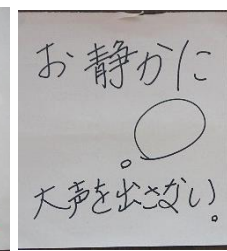 お静かに
大声を出さない。